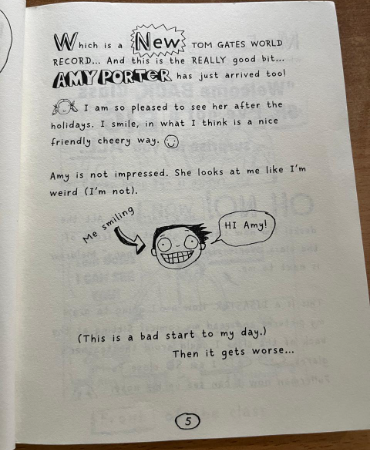 Which is a New TOM GATES WORLD
RECORD... And this is the REALLY good bit...
AMY PORTER has just arrived too!
I am so pleased to see her after the
holidays. I smile, in what I think is a nice
friendly cheery way.
Amy is not impressed. She looks at me like I'm
weird (I'm not).
Me smiling
HI Amy!
(This is a bad start to my day.)
Then it gets worse...
5